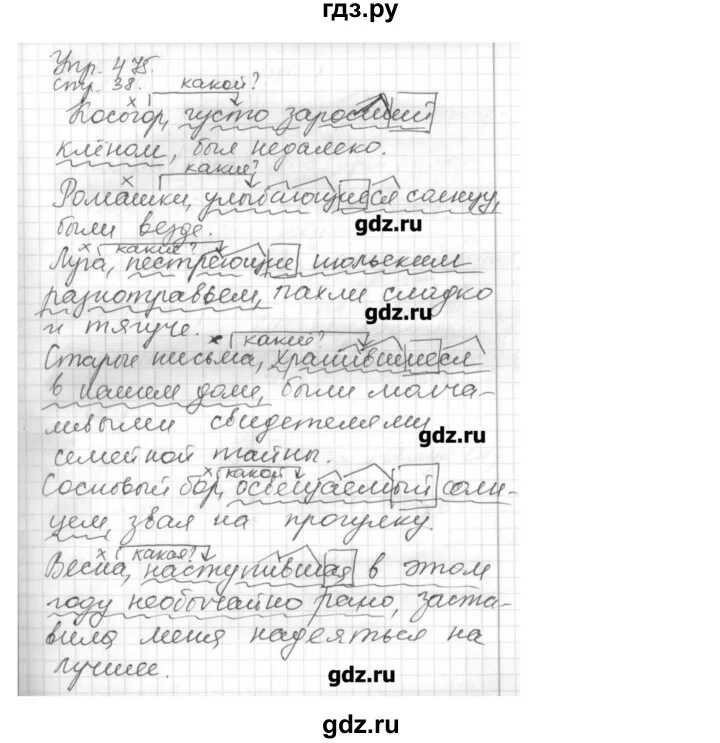 гдз.ру
Упр. 478.
стр. 38. какой?
х
Косогор, густо заросший
клёном, был недалеко.
х какие?
Ромашки, улыбающиеся солнцу,
были везде.
gdz.ru
х какие?
Луга, пестреющие июльским
разнотравьем, пахли сладко
gdz.ru
и тягуче.
х какие?
Старые письма, хранившиеся
в нашем доме, были молча-
ливыми свидетелями
gdz.ru
семейной тайны.
х какой
Сосновый бор, освещаемый солн-
цем, звал на прогулку.
х какая?
Весна, наступившая в этом
году необычайно рано, заста-
вила меня надеяться на
лучшее.
gdz.ru
gdz.ru